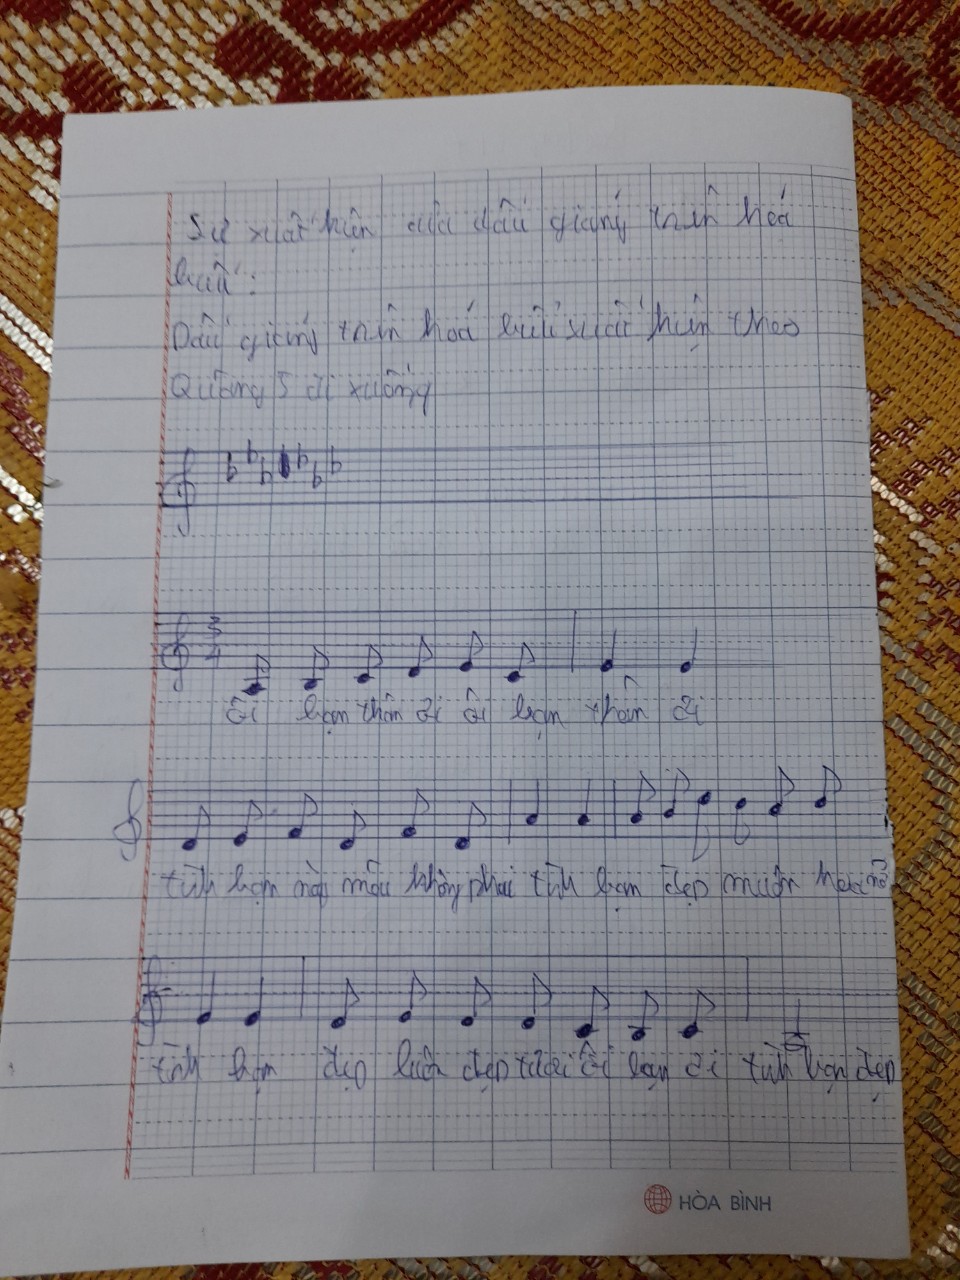 Sự xuất hiện của dấu giáng trên hoá
biểu:
Dấu giáng trên hoá biểu xuất hiện theo
Quãng 5 đi xuống
3
4
Ôi bạn thân ơi ôi bạn thân ơi
tình bạn này mãi không phai tình bạn đẹp muôn hoa nở
tình bạn đẹp luôn đẹp tươi ôi bạn ơi tình bạn đẹp
HÒA BÌNH